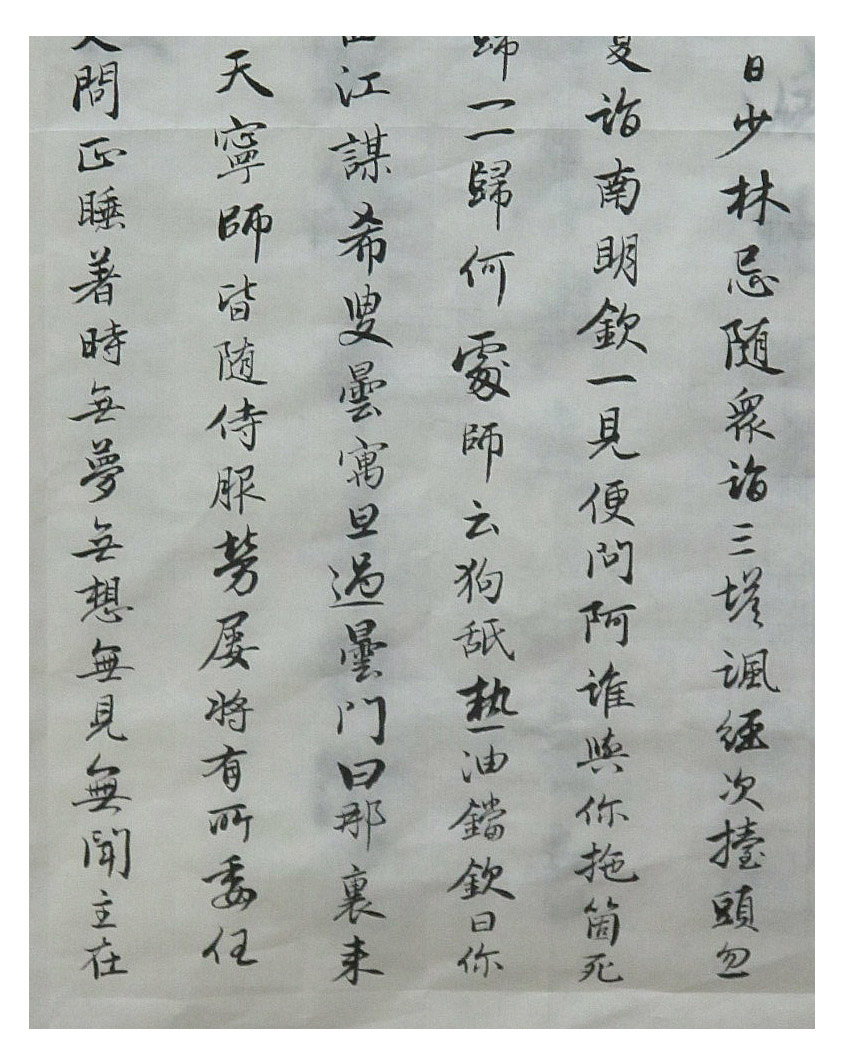 日少林忌随衆詣三塔諷經次擡頭忽
詣南明欽一見便问阿誰與你拖箇死
歸一一歸何處師云狗舐熱油鐺欽曰你
江謀希叟曇寓旦過曇门曰那裏来
天寧師皆随侍服勞屡将有所委任
問正睡著時無夢無想無見無聞主在